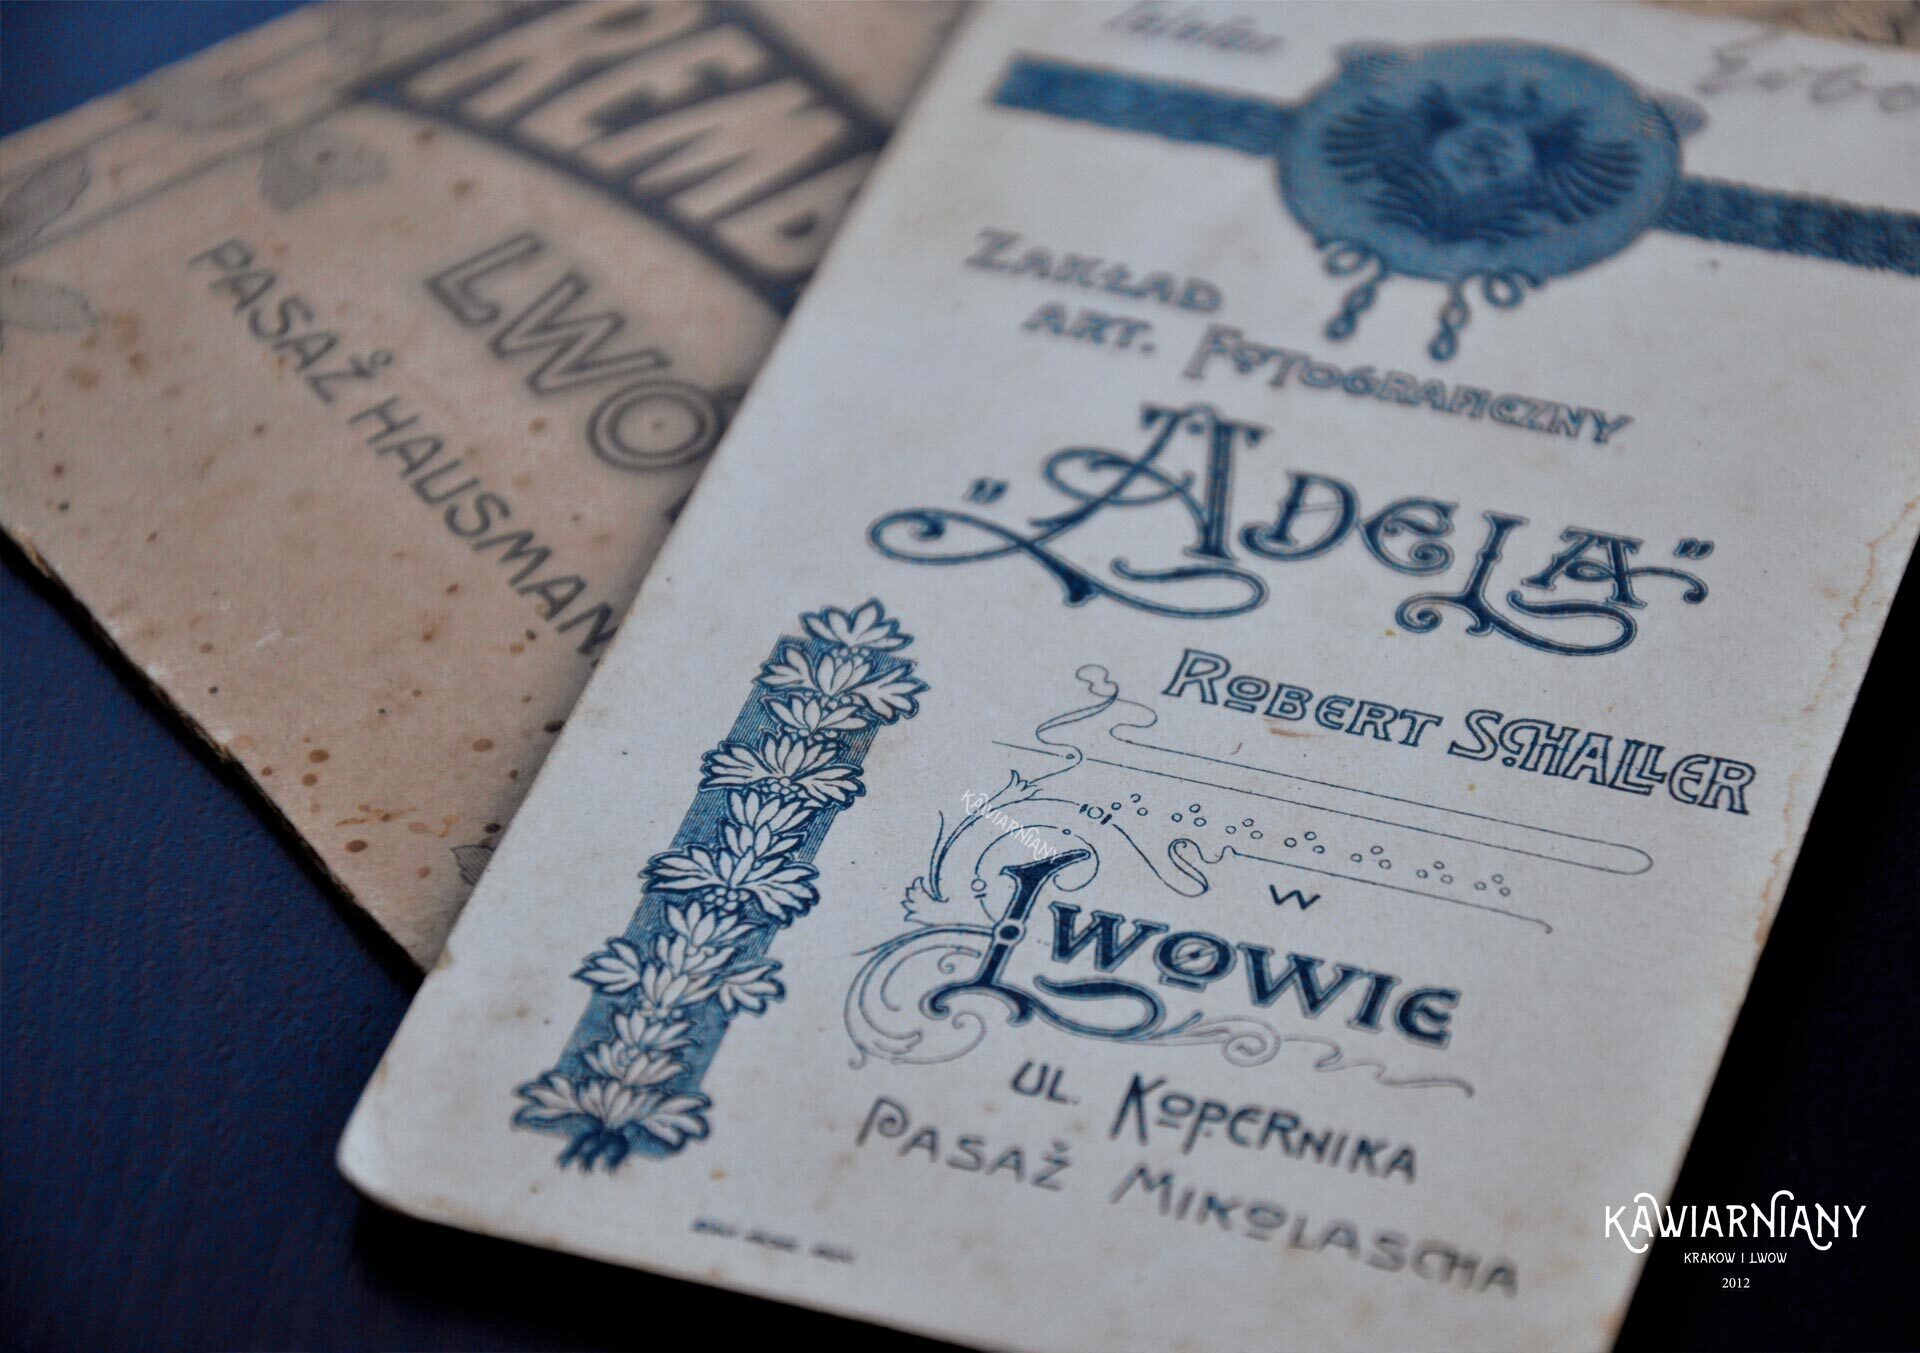 LWO
PASAŻ HAUSMAN
ZAKŁAD
ART. FOTOGRAFICZNY
"ADELA"
ROBERT SCHALLER
W
LWOWIE
UL. KOPERNIKA
PASAŻ MIKOLASCHA
KAWIARNIANY
KAWIARNIANY
KRAKOW I LWOW
2012